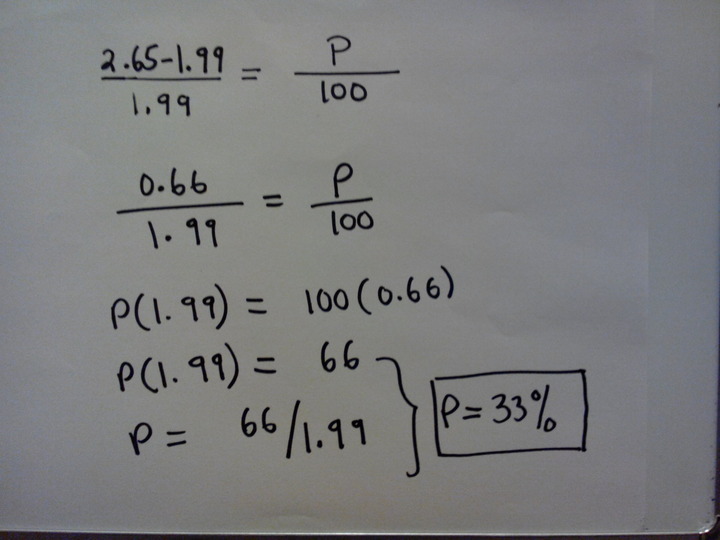 2.65-1.99 = P
1.99 100
0.66 = P
1.99 100
P(1.99) = 100(0.66)
P(1.99) = 66
P = 66/1.99
P = 33%